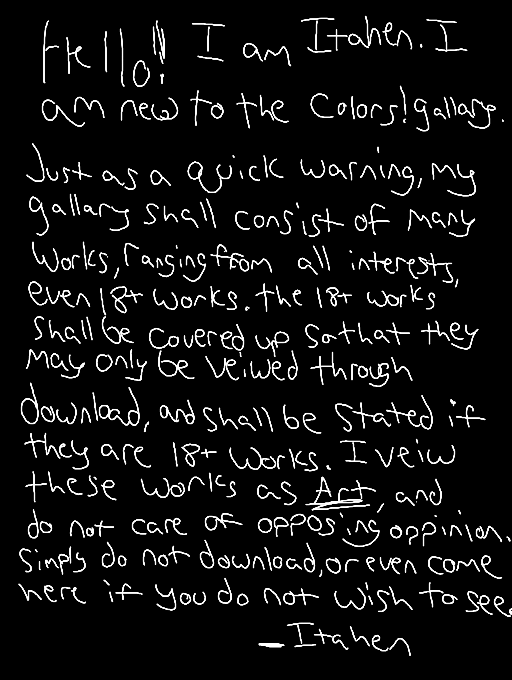 Hello!! I am Itahen. I
am new to the Colors! gallary.
Just as a quick warning, my
gallary shall consist of many
works, ranging from all interests,
even 18+ works. the 18+ works
shall be covered up so that they
may only be veiwed through
download, and shall be stated if
they are 18+ works. I veiw
these works as Art, and
do not care of opposing oppinion.
Simply do not download, or even come
here if you do not wish to see.
- Itahen